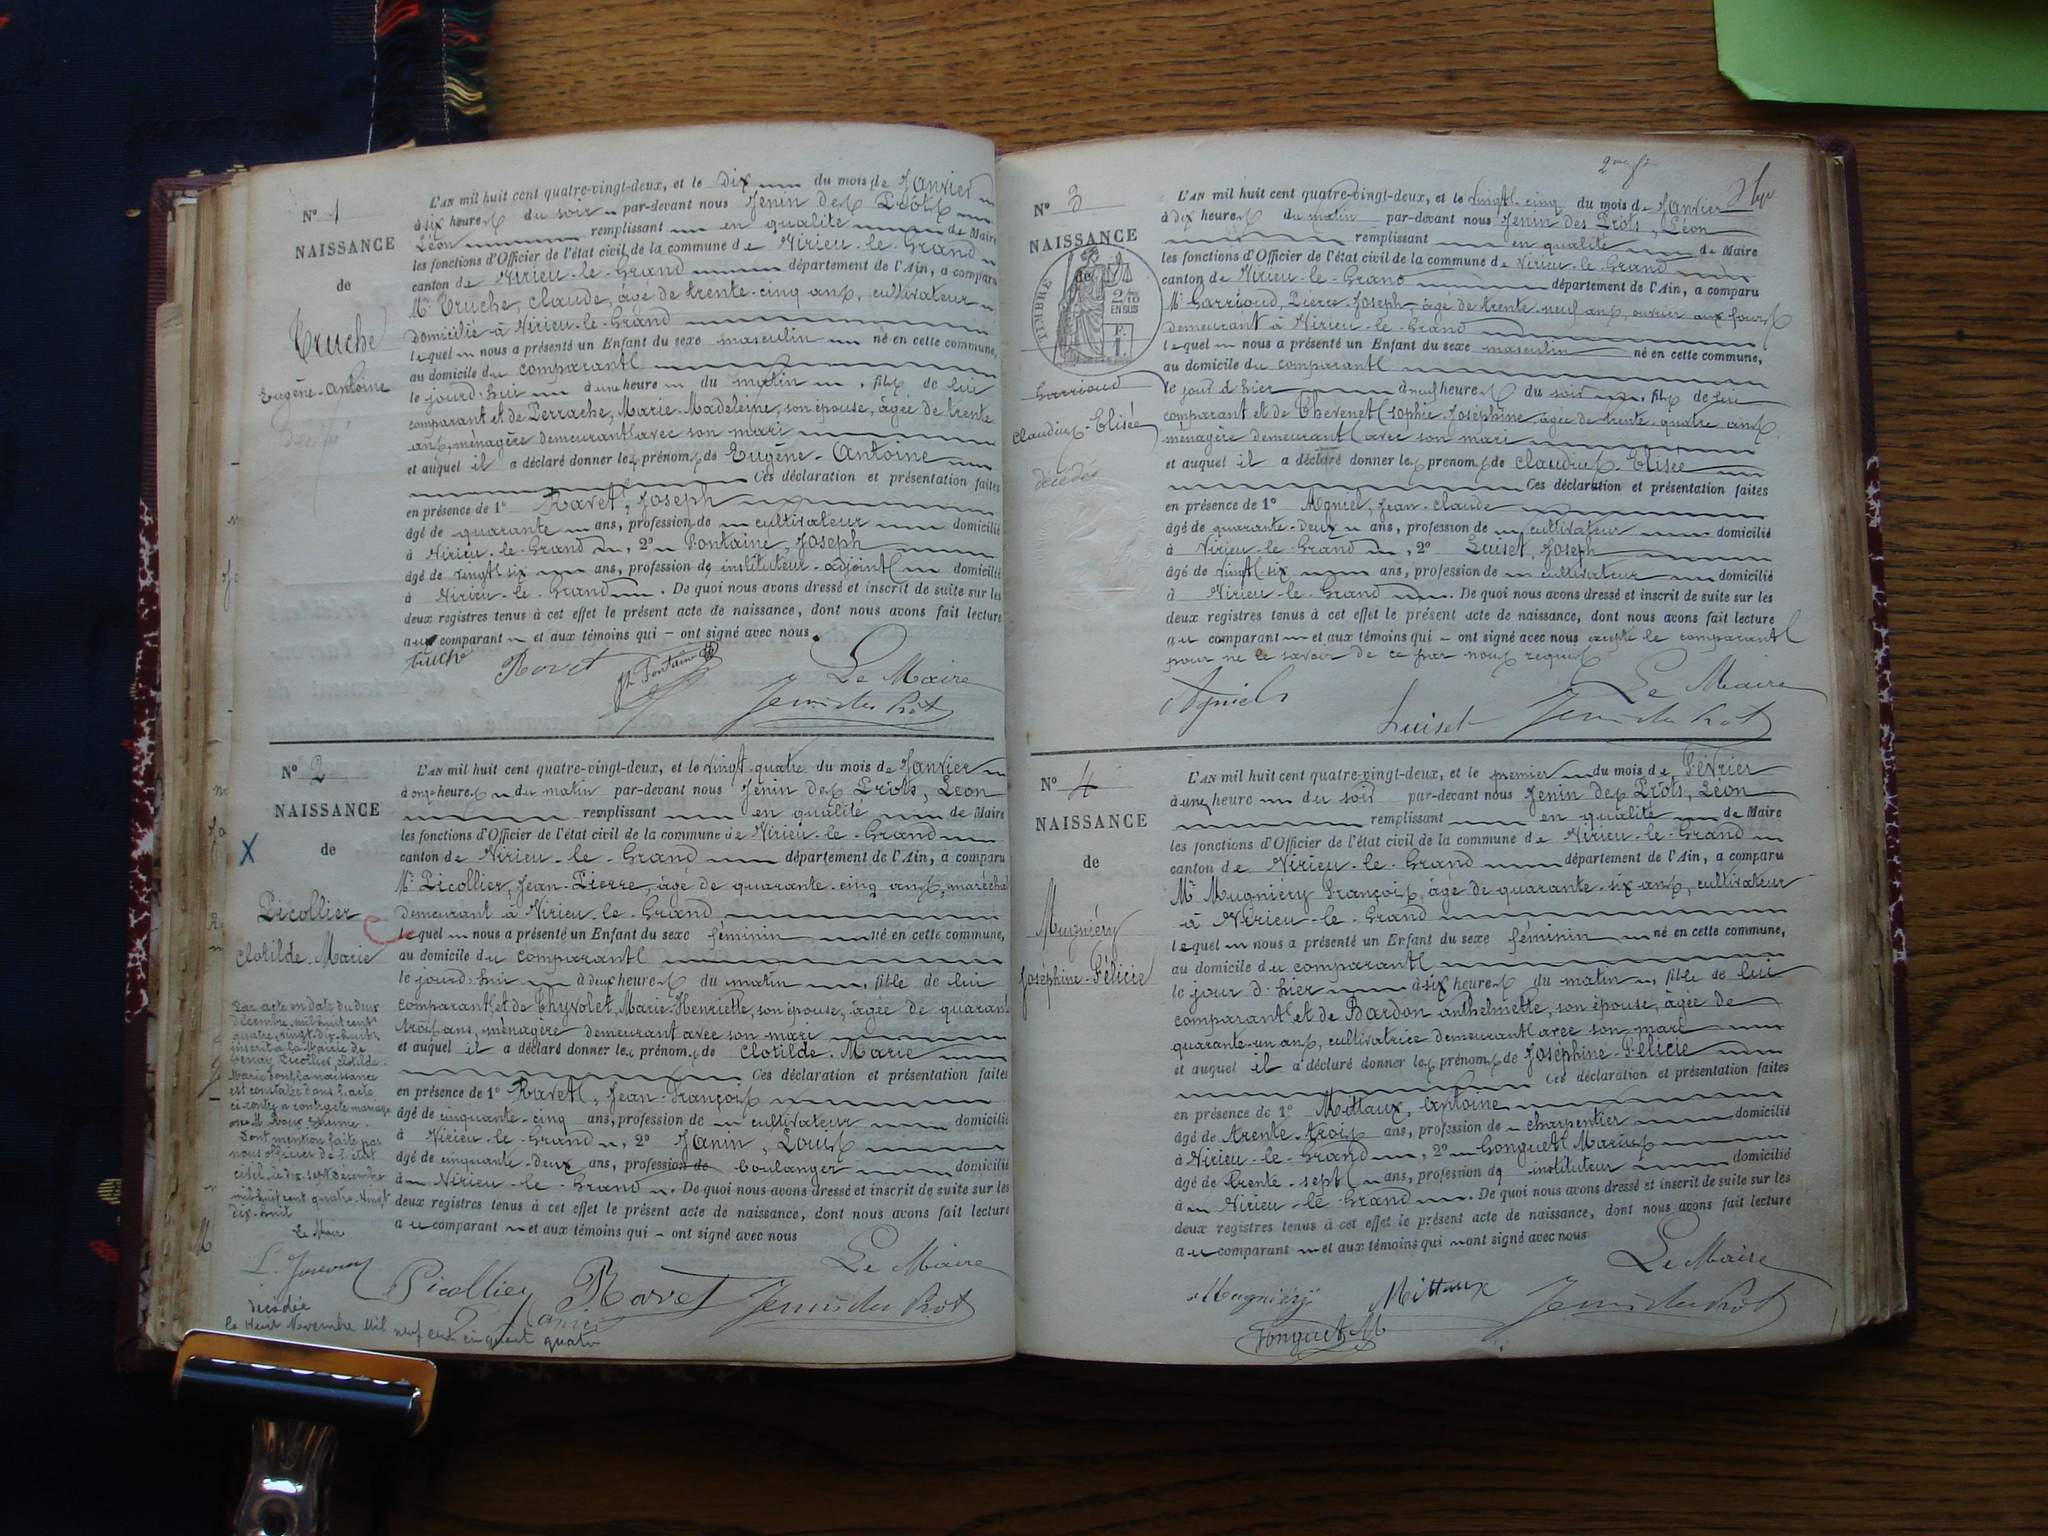 N° 1
NAISSANCE
de
Truche
Eugène-Antoine
Décédé
L'AN mil huit cent quatre-vingt-deux, et le dix du mois de Janvier
à six heures du soir par-devant nous Jenin des Prôts
Léon remplissant en qualité de Maire
les fonctions d'Officier de l'état civil de la commune de Virieu-le-Grand
canton de Virieu-le-Grand département de l'Ain, a comparu
Mr Truche, Claude, âgé de trente-cinq ans, cultivateur
domicilié à Virieu-le-Grand
lequel nous a présenté un Enfant du sexe masculin né en cette commune,
au domicile du comparant
le jourd'hui à une heure du matin, fils de lui
comparant et de Perrache, Marie-Madeleine, son épouse, âgée de trente
ans, ménagère demeurant avec son mari
et auquel il a déclaré donner les prénoms de Eugène-Antoine
Ces déclaration et présentation faites
en présence de 1° Ravet, Joseph
âgé de quarante ans, profession de cultivateur domicilié
à Virieu-le-Grand, 2° Fontaine, Joseph
âgé de vingt six ans, profession de instituteur-adjoint domicilié
à Virieu-le-Grand. De quoi nous avons dressé et inscrit de suite sur les
deux registres tenus à cet effet le présent acte de naissance, dont nous avons fait lecture
au comparant et aux témoins qui ont signé avec nous.
Truche Ravet Jh Fontaine Le Maire
Jenin des Prôts
N° 2
NAISSANCE
de
Picollier
Clotilde-Marie
Par acte en date du deux
décembre mil huit cent
quatre-vingt-dix-huit
inscrit à la Mairie de
Tenay, Picollier, Clotilde
Marie dont la naissance
est constatée dans l'acte
ci-contre a contracté mariage
avec M. Roux Etienne.
Dont mention faite par
nous officier de l'état
civil, le dix sept décembre
mil huit cent quatre-vingt
dix-huit
Le Maire
décédée
le Huit Novembre Mil neuf cent cinquante quatre
L'AN mil huit cent quatre-vingt-deux, et le vingt-quatre du mois de Janvier
à onze heures du matin par-devant nous Jenin des Prôts, Léon
remplissant en qualité de Maire
les fonctions d'Officier de l'état civil de la commune de Virieu-le-Grand
canton de Virieu-le-Grand département de l'Ain, a comparu
Mr Picollier, Jean-Pierre, âgé de quarante-cinq ans, maréchal
demeurant à Virieu-le-Grand
lequel nous a présenté un Enfant du sexe féminin né en cette commune,
au domicile du comparant
le jourd'hui à deux heures du matin, fille de lui
comparant et de Thyvolet, Marie-Henriette, son épouse, âgée de quarante
trois ans, ménagère demeurant avec son mari
et auquel il a déclaré donner les prénoms de Clotilde-Marie
Ces déclaration et présentation faites
en présence de 1° Ravet, Jean-François
âgé de cinquante-cinq ans, profession de cultivateur domicilié
à Virieu-le-Grand, 2° Janin, Louis
âgé de cinquante-deux ans, profession de boulanger domicilié
à Virieu-le-Grand. De quoi nous avons dressé et inscrit de suite sur les
deux registres tenus à cet effet le présent acte de naissance, dont nous avons fait lecture
au comparant et aux témoins qui ont signé avec nous
Le Maire
Picollier Ravet Jenin des Prôts
Janin
2me ft
N° 3
NAISSANCE
de
TIMBRE
2/10
EN SUS
Garrioud
Claudius-Elisée
décédé
L'AN mil huit cent quatre-vingt-deux, et le vingt-cinq du mois de Janvier
à dix heures du matin par-devant nous Jenin des Prôts, Léon
remplissant en qualité de Maire
les fonctions d'Officier de l'état civil de la commune de Virieu-le-Grand
canton de Virieu-le-Grand département de l'Ain, a comparu
Mr Garrioud, Pierre-Joseph, âgé de trente-neuf ans, ouvrier aux fours
demeurant à Virieu-le-Grand
lequel nous a présenté un Enfant du sexe masculin né en cette commune,
au domicile du comparant
le jour d'hier à neuf heures du soir, fils de lui
comparant et de Thevenet Sophie-Joséphine, âgée de trente-quatre ans
ménagère demeurant avec son mari
et auquel il a déclaré donner les prénoms de Claudius-Elisée
Ces déclaration et présentation faites
en présence de 1° Mgniel, Jean-Claude
âgé de quarante-deux ans, profession de cultivateur domicilié
à Virieu-le-Grand, 2° Luiset, Joseph
âgé de vingt-six ans, profession de cultivateur domicilié
à Virieu-le-Grand. De quoi nous avons dressé et inscrit de suite sur les
deux registres tenus à cet effet le présent acte de naissance, dont nous avons fait lecture
au comparant et aux témoins qui ont signé avec nous excepté le comparant
pour ne le savoir de ce par nous requis
Le Maire
Luiset Jenin des Prôts
N° 4
NAISSANCE
de
Mugniéry
Joséphine-Félicie
L'AN mil huit cent quatre-vingt-deux, et le premier du mois de Février
à une heure du soir par-devant nous Jenin des Prôts, Léon
remplissant en qualité de Maire
les fonctions d'Officier de l'état civil de la commune de Virieu-le-Grand
canton de Virieu-le-Grand département de l'Ain, a comparu
Mr Mugniéry François, âgé de quarante-six ans, cultivateur
à Virieu-le-Grand
lequel nous a présenté un Enfant du sexe féminin né en cette commune,
au domicile du comparant
le jour d'hier à six heures du matin, fille de lui
comparant et de Bardon Anthelmette, son épouse, âgée de
quarante-un ans, cultivatrice demeurant avec son mari
et auquel il a déclaré donner les prénoms de Joséphine-Félicie
Ces déclaration et présentation faites
en présence de 1° Mittaux, Antoine
âgé de trente-trois ans, profession de charpentier domicilié
à Virieu-le-Grand, 2° Gonguet Marius
âgé de trente-sept ans, profession de instituteur domicilié
à Virieu-le-Grand. De quoi nous avons dressé et inscrit de suite sur les
deux registres tenus à cet effet le présent acte de naissance, dont nous avons fait lecture
au comparant et aux témoins qui ont signé avec nous
Le Maire
Mugniéry Mittaux Jenin des Prôts
Gonguet M